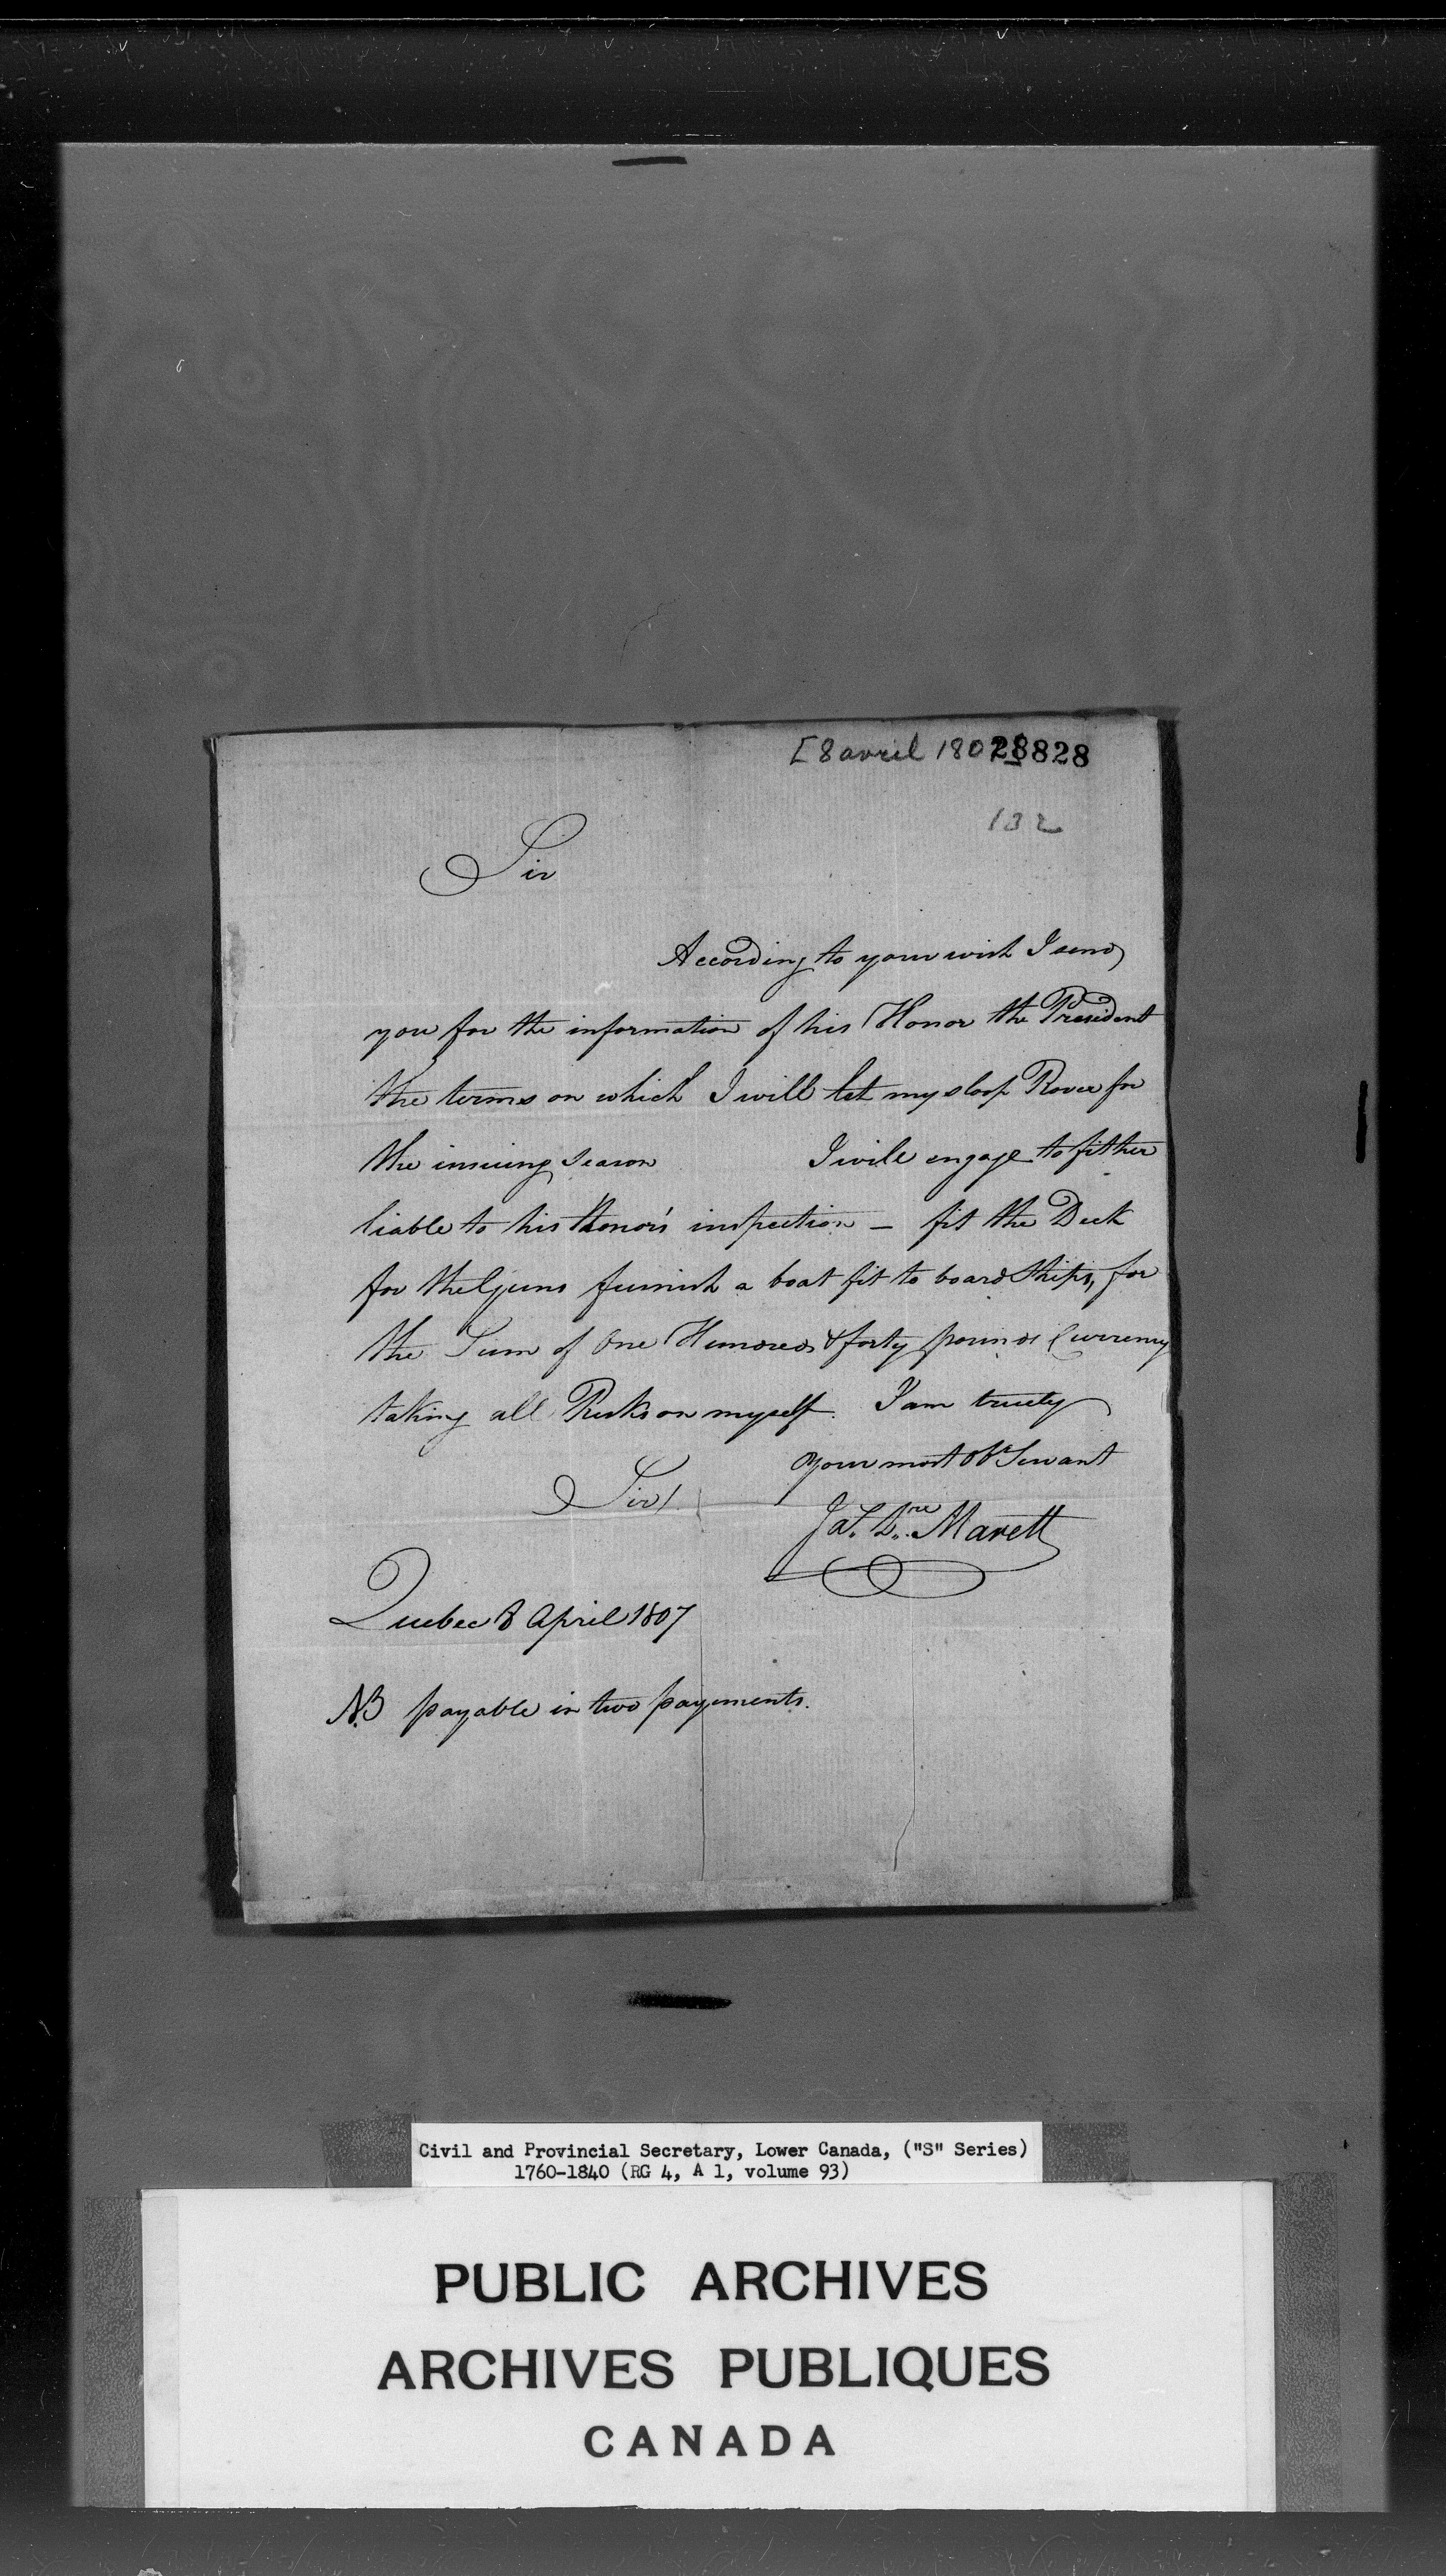 [8 avril 180 28828
132
Sir
According to your wish I send
you for the information of his Honor the President
the terms on which I will let my sloop Rover for
the insuing season I will engage to fit her
liable to his Honor's inspection — fit the Deck
for the Guns furnish a boat fit to board Ships, for
the Sum of One Hundred & forty pounds Currency
taking all Risks on myself. I am truely
Sir/ your most Ob^t Servant
Ja^s. L^re Marett
Quebec 8 April 1807
NB payable in two payements.
Civil and Provincial Secretary, Lower Canada, ("S" Series)
1760-1840 (RG 4, A 1, volume 93)
PUBLIC ARCHIVES
ARCHIVES PUBLIQUES
CANADA